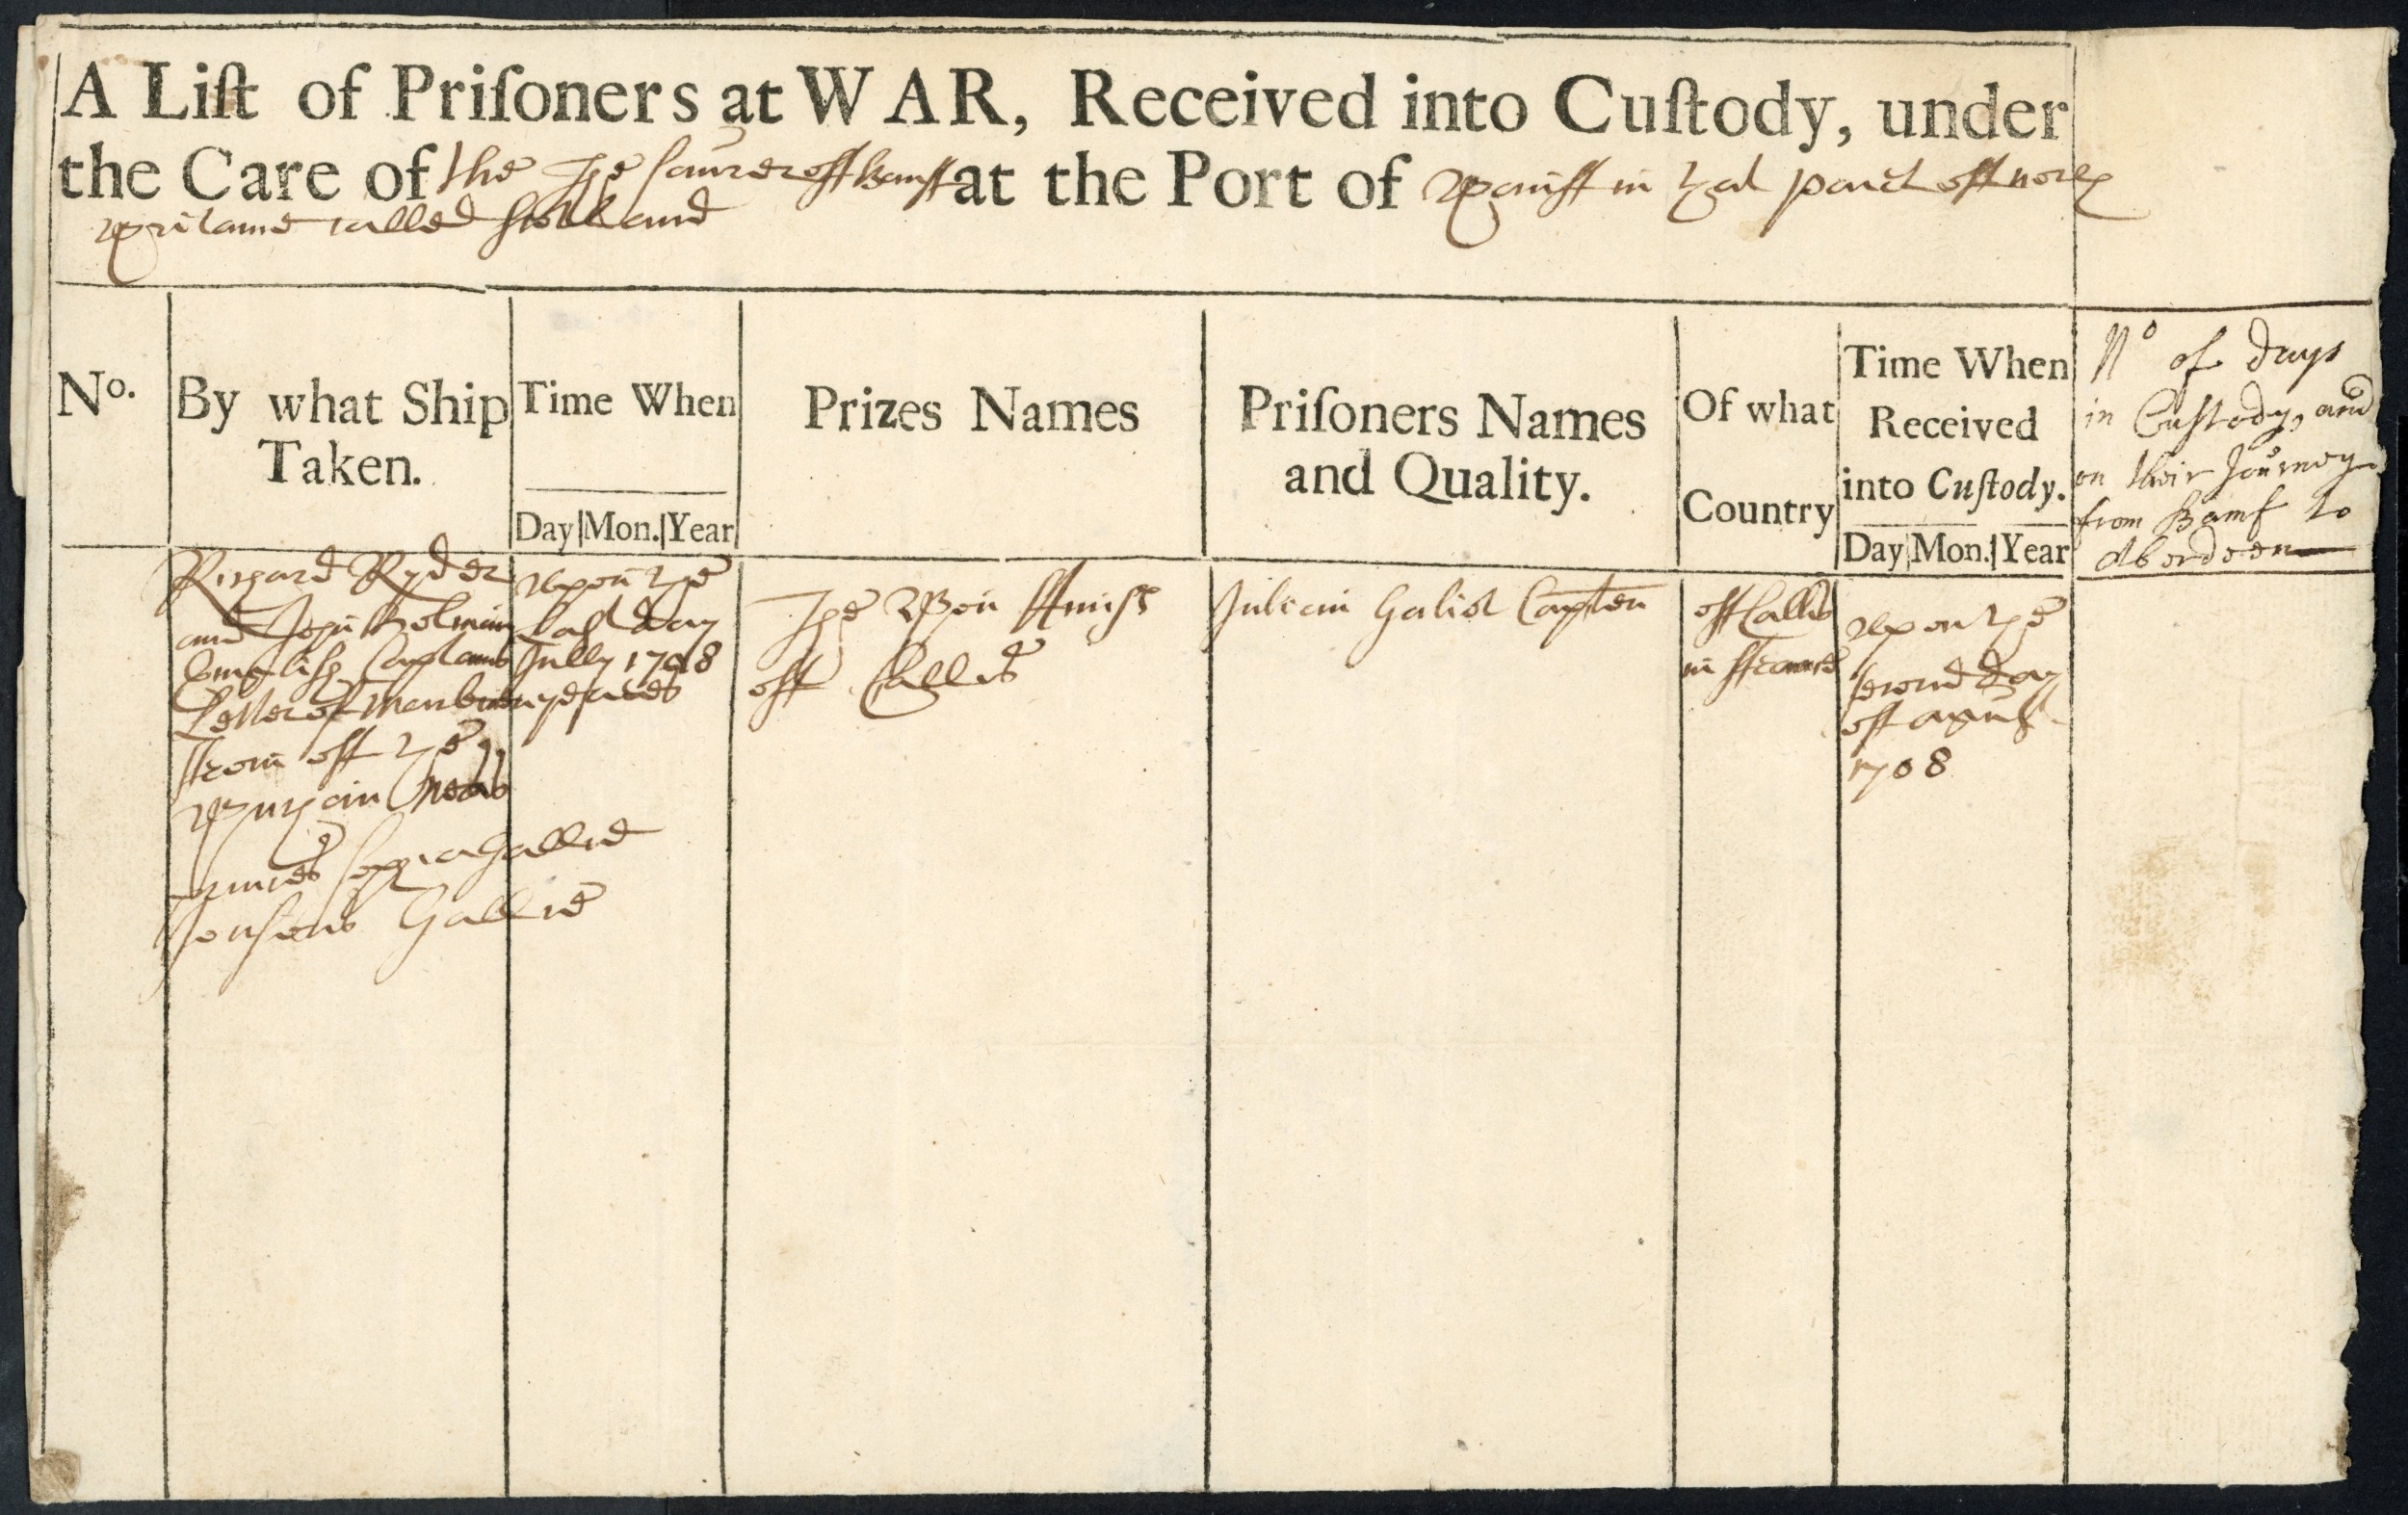 A Liſt of Priſoners at WAR, Received into Cuſtody, under
the Care of the at the Port of Banff in that pairt off north
Britane called Scotland
No.
By what Ship
Taken.
Time When
Day Mon. Year
Prizes Names
Priſoners Names
and Quality.
Of what
Country
Time When
Received
into Cuſtody.
Day Mon. Year
No of days
in Custody, and
on their Journey
from Bamf to
Aberdeen
Richard Ryder
and John
English Captans
Letter of
from off the
Buchan
Gallie
Gallie
Upon the
Last day
Jully 1708
The Bon
off Callis
Captan
off Callis
in France
Upon the
second day
off agust
1708